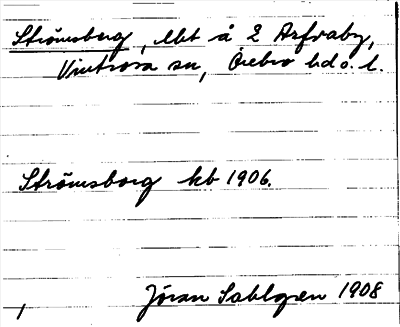 Strömsborg, lht å 2 Arfvaby,
Vintrosa sn, Örebro hd o. l.
Strömsborg hb 1906.
Jöran Sahlgren 1908
1